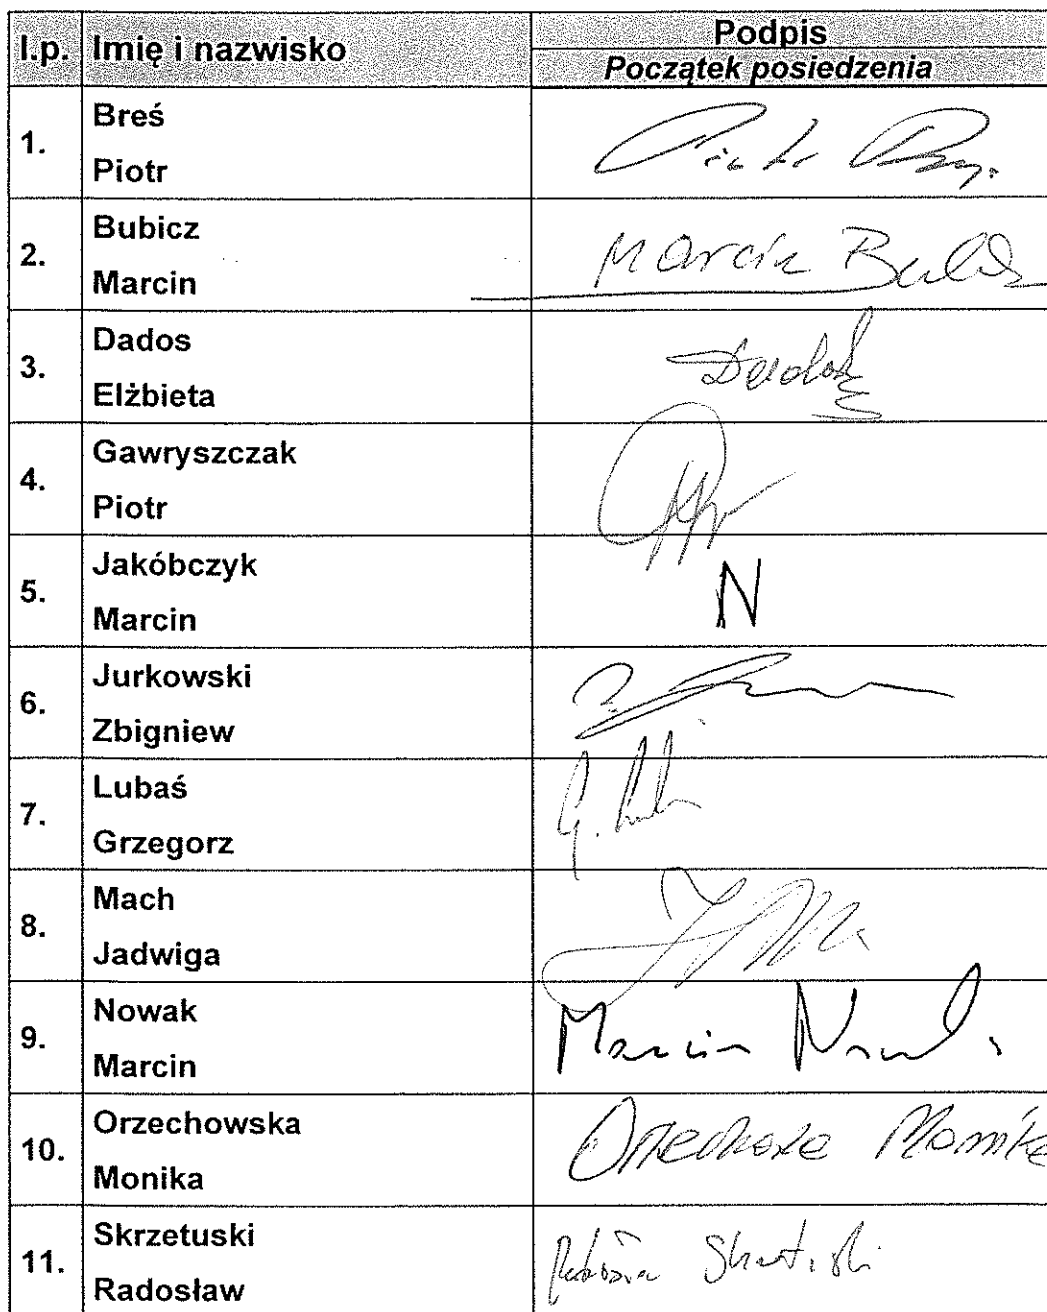 l.p. Imię i nazwisko Podpis
Początek posiedzenia
1. Breś
Piotr
2. Bubicz
Marcin
Marcin
3. Dados
Elżbieta
Dados
4. Gawryszczak
Piotr
5. Jakóbczyk
Marcin
N
6. Jurkowski
Zbigniew
7. Lubaś
Grzegorz
8. Mach
Jadwiga
9. Nowak
Marcin
Marcin Nowak
10. Orzechowska
Monika
Monika
11. Skrzetuski
Radosław